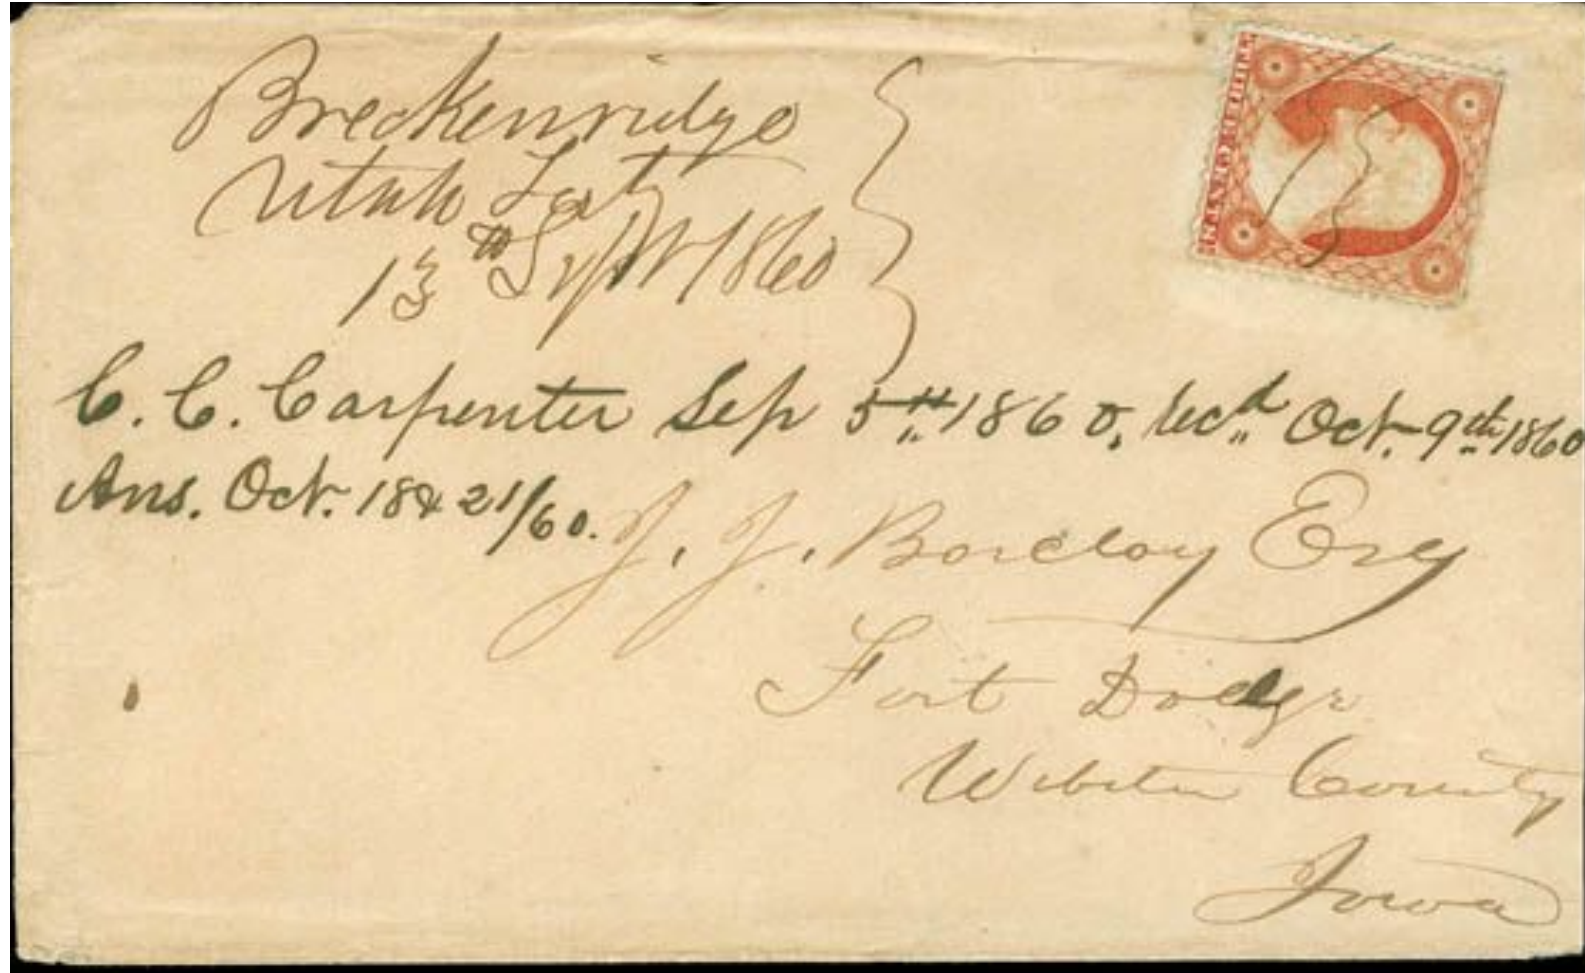 Breckenridge
Utah Tert
13th Sept 1860
C. C. Carpenter Sep 5th 1860, Recd Oct. 9th 1860
Ans. Oct. 18 & 21/60.
J. J. Barclay Esq
Fort Dodge
Webster County
Iowa